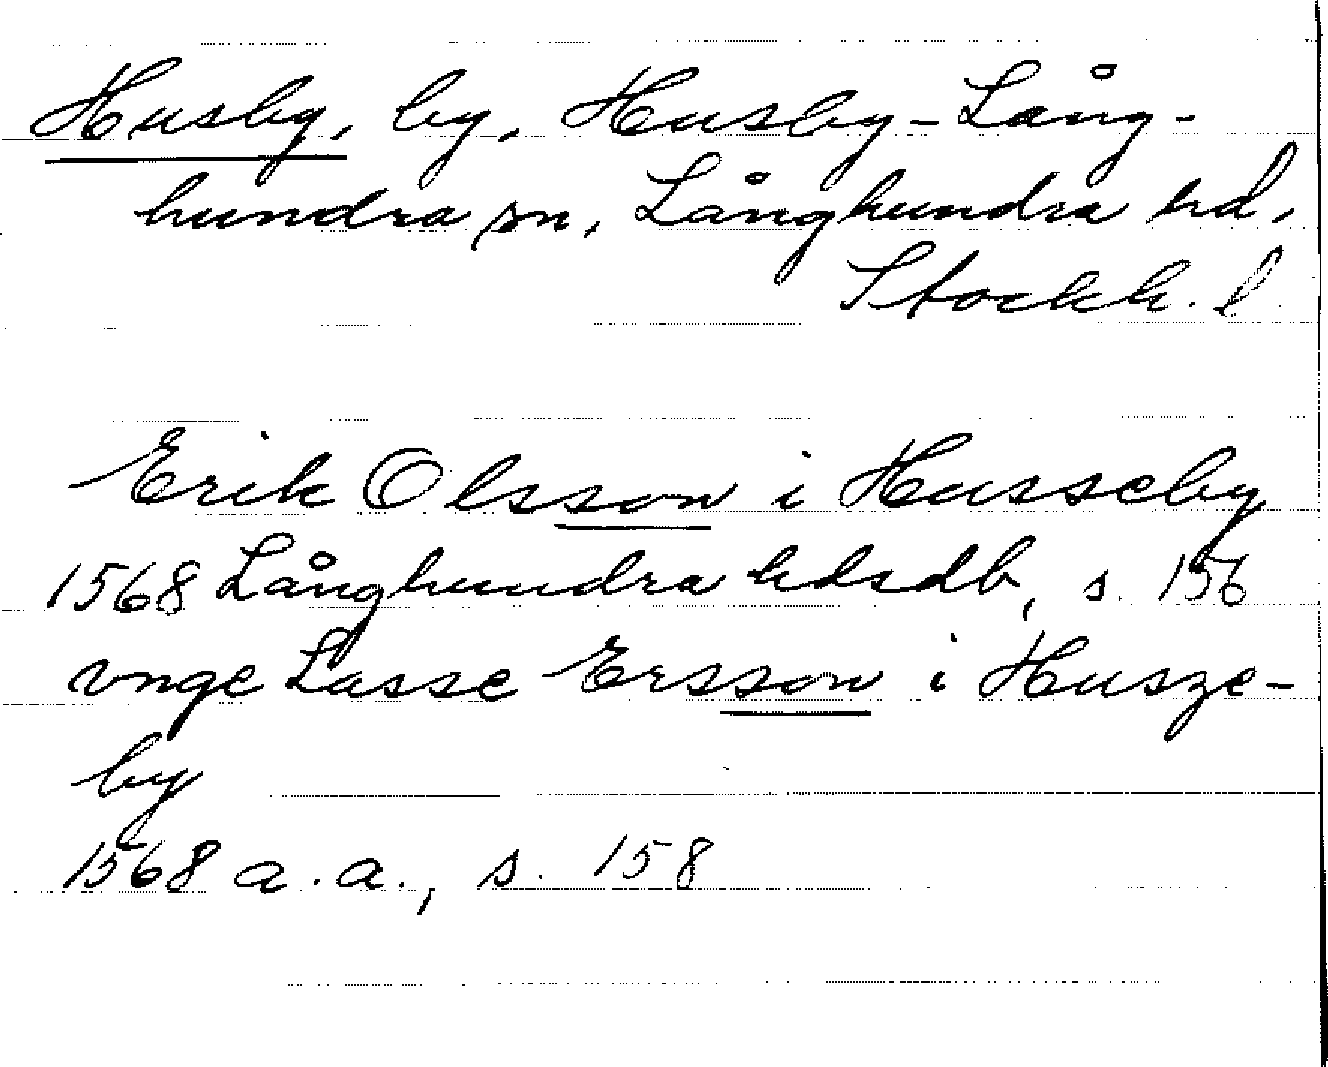 Husby, by, Husby-Lång-
hundra sn, Långhundra hd,
Stockh. l.
Erik Olsson i Husseby
1568 Långhundra hdsdb, s. 156
vnge Lasse Ersson i Husze-
by
1568 a.a., s. 158